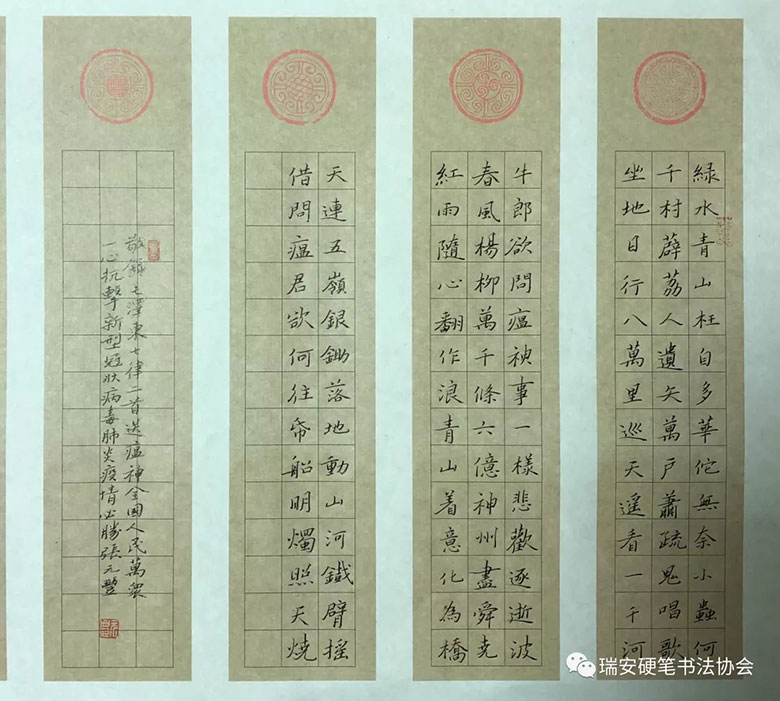 綠水青山枉自多華佗無奈小蟲何
千村薜荔人遺矢萬戶蕭疏鬼唱歌
坐地日行八萬里巡天遙看一千河
牛郎欲問瘟神事一樣悲歡逐逝波
春風楊柳萬千條六億神州盡舜堯
紅雨隨心翻作浪青山着意化為橋
天連五嶺銀鋤落地動山河鐵臂搖
借問瘟君欲何往帋船明燭照天燒
敬錄毛澤東七律二首送瘟神全国人民萬衆
一心抗擊新型冠狀病毒肺炎疫情必勝張元豐
瑞安硬笔书法协会